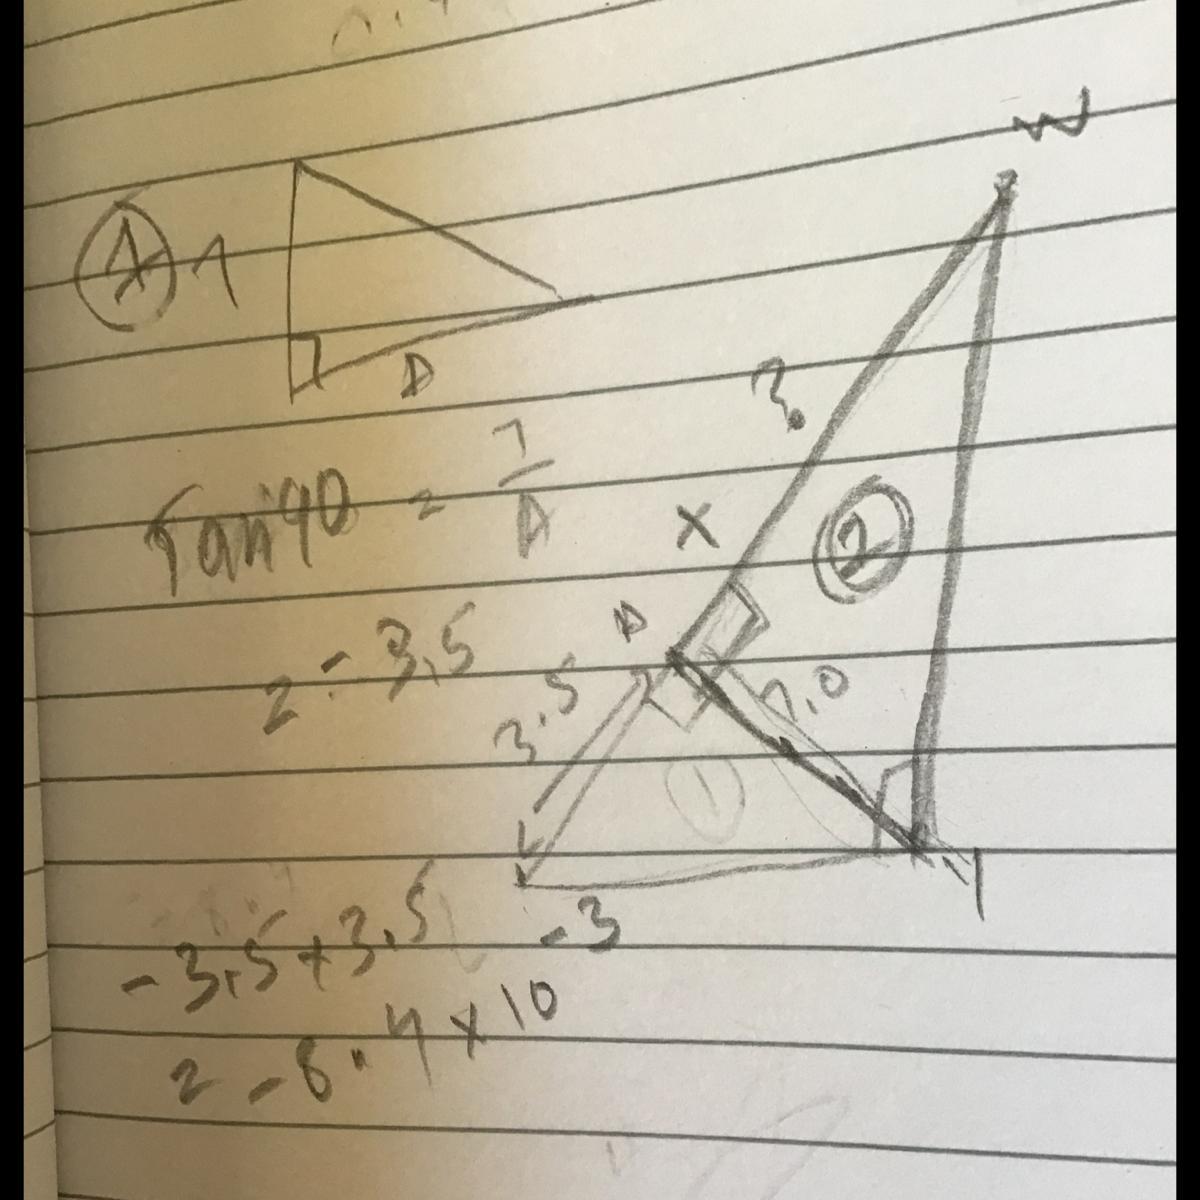 W
1 7
D
?
Tan 90 = 7/A
X
2
= - 3.5
A
3.5
7.0
1
- 3.5 + 3.5
= - 8.4 x 10 -3